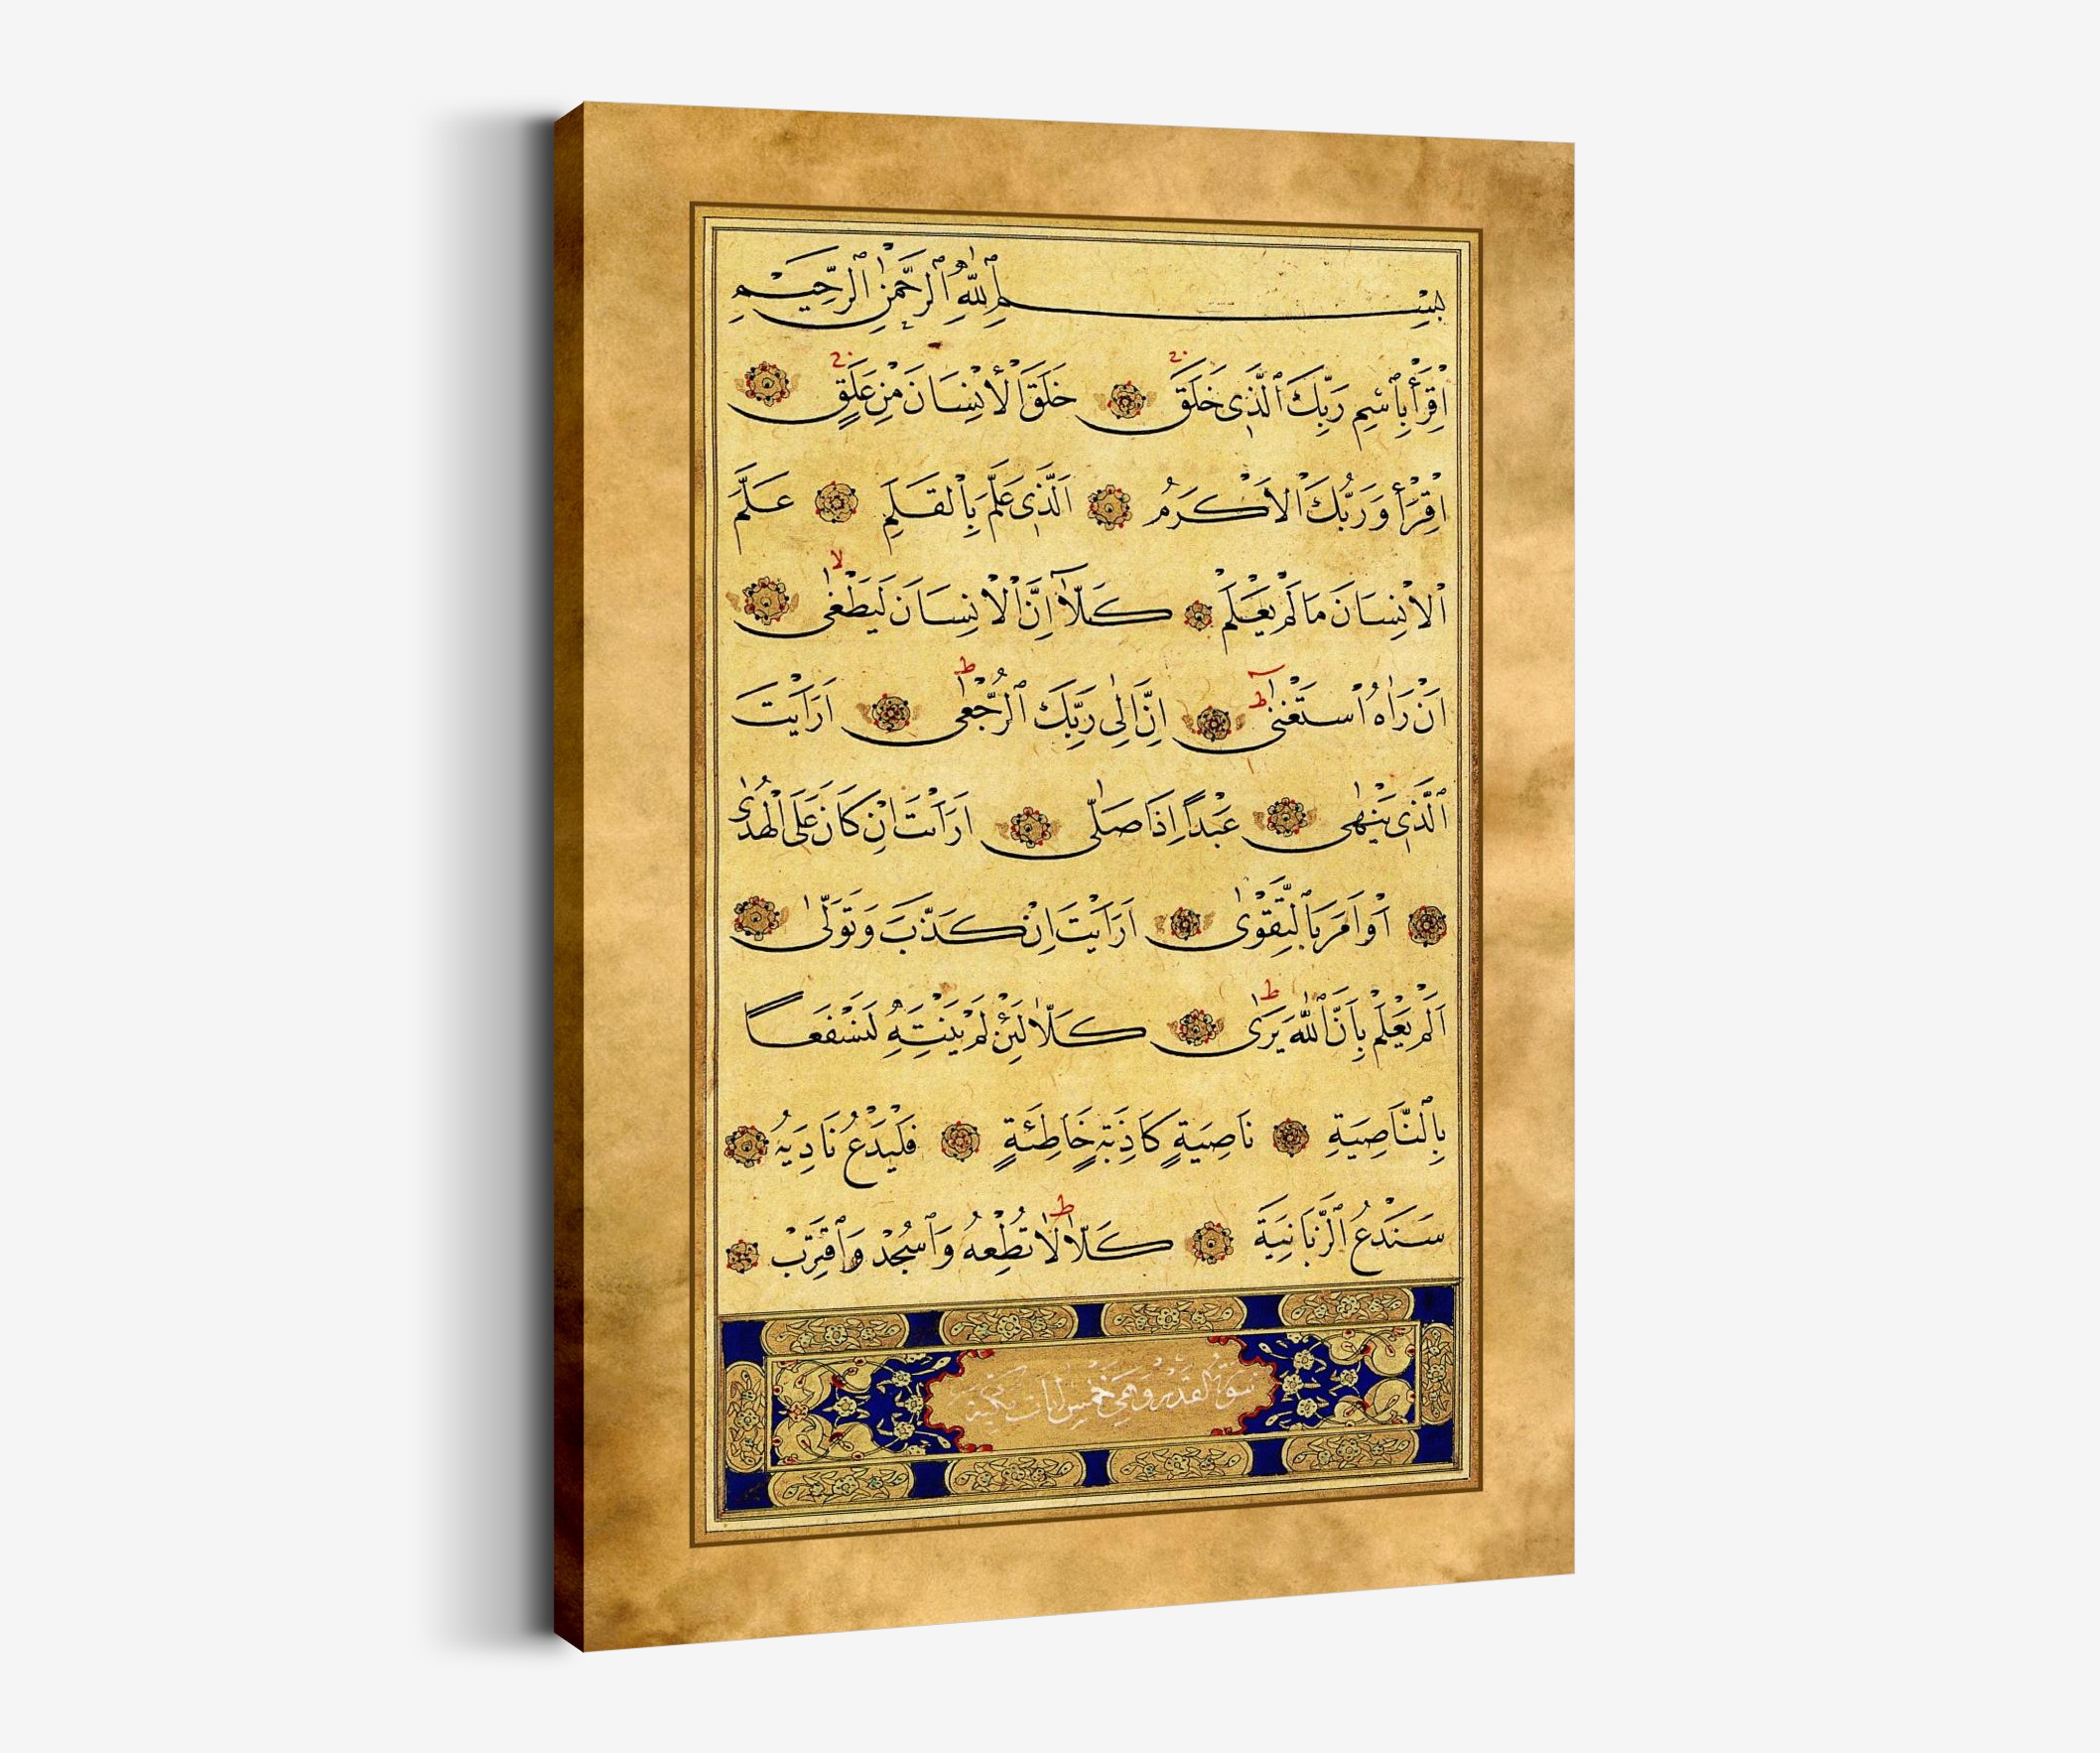 بِسْمِ ٱللّٰهِ ٱلرَّحْمٰنِ ٱلرَّحِيمِ
اِقْرَأْ بِٱسْمِ رَبِّكَ ٱلَّذِى خَلَقَ خَلَقَ ٱلْاِنْسَانَ مِنْ عَلَقٍ
اِقْرَأْ وَرَبُّكَ ٱلْاَكْرَمُ اَلَّذِى عَلَّمَ بِٱلْقَلَمِ عَلَّمَ
ٱلْاِنْسَانَ مَا لَمْ يَعْلَمْ كَلَّآ اِنَّ ٱلْاِنْسَانَ لَيَطْغٰى
اَنْ رَاٰهُ ٱسْتَغْنٰى اِنَّ اِلٰى رَبِّكَ ٱلرُّجْعٰى اَرَاَيْتَ
ٱلَّذِى يَنْهٰى عَبْدًا اِذَا صَلّٰى اَرَاَيْتَ اِنْ كَانَ عَلَى ٱلْهُدٰى
اَوْ اَمَرَ بِٱلتَّقْوٰى اَرَاَيْتَ اِنْ كَذَّبَ وَتَوَلّٰى
اَلَمْ يَعْلَمْ بِاَنَّ ٱللّٰهَ يَرٰى كَلَّا لَئِنْ لَمْ يَنْتَهِ لَنَسْفَعًا
بِٱلنَّاصِيَةِ نَاصِيَةٍ كَاذِبَةٍ خَاطِئَةٍ فَلْيَدْعُ نَادِيَهُ
سَنَدْعُ ٱلزَّبَانِيَةَ كَلَّا لَا تُطِعْهُ وَٱسْجُدْ وَٱقْتَرِبْ
سورة القدر وهي خمس ايات مكية